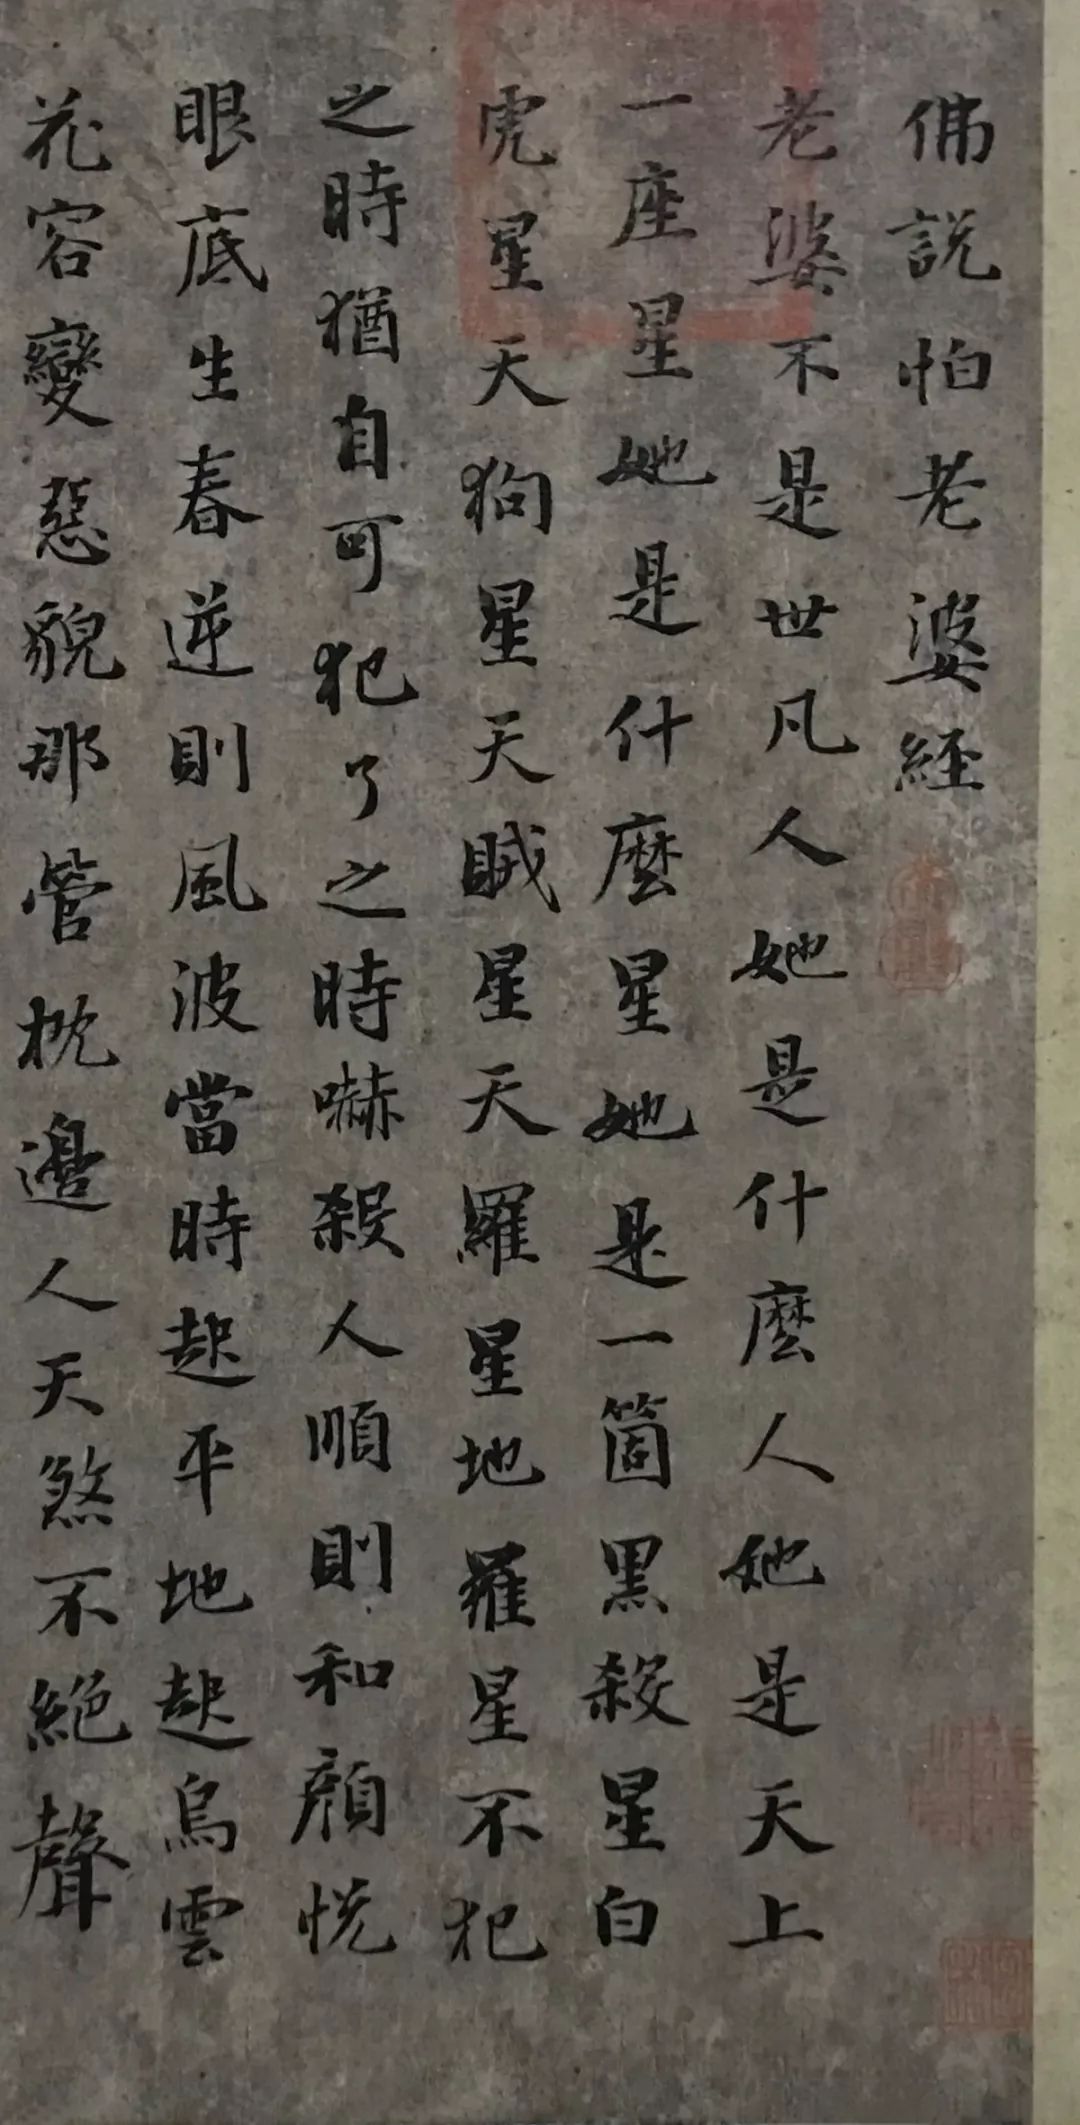 佛說怕老婆經
老婆不是世凡人她是什麼人她是天上
一座星她是什麼星她是一箇黑殺星白
虎星天狗星天賊星天羅星地羅星不犯
之時猶自可犯了之時嚇殺人順則和顏悅
眼底生春逆則風波當時起平地起烏雲
花容變惡貌那管枕邊人天煞不絕聲